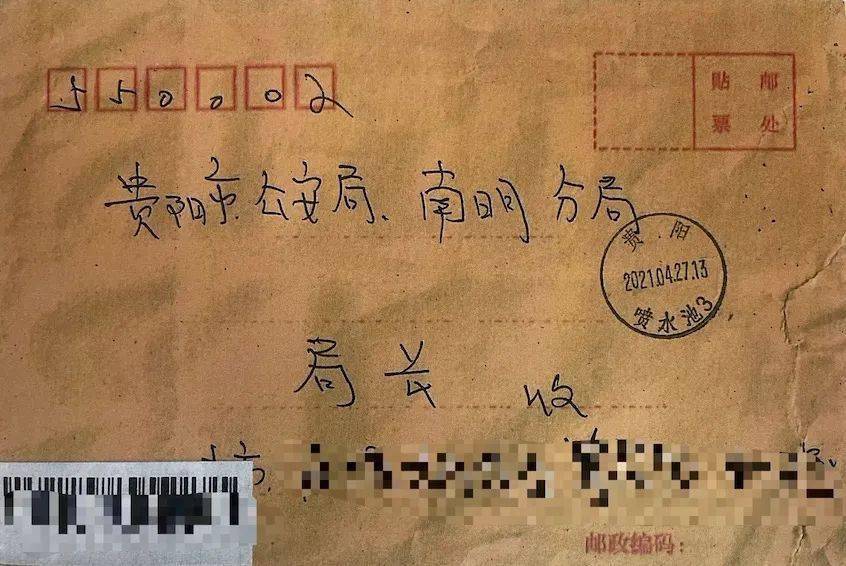 550002
贴 邮
票 处
贵阳市公安局、南明分局
贵阳
2021.04.27.13
喷水池3
局长 收
邮政编码：